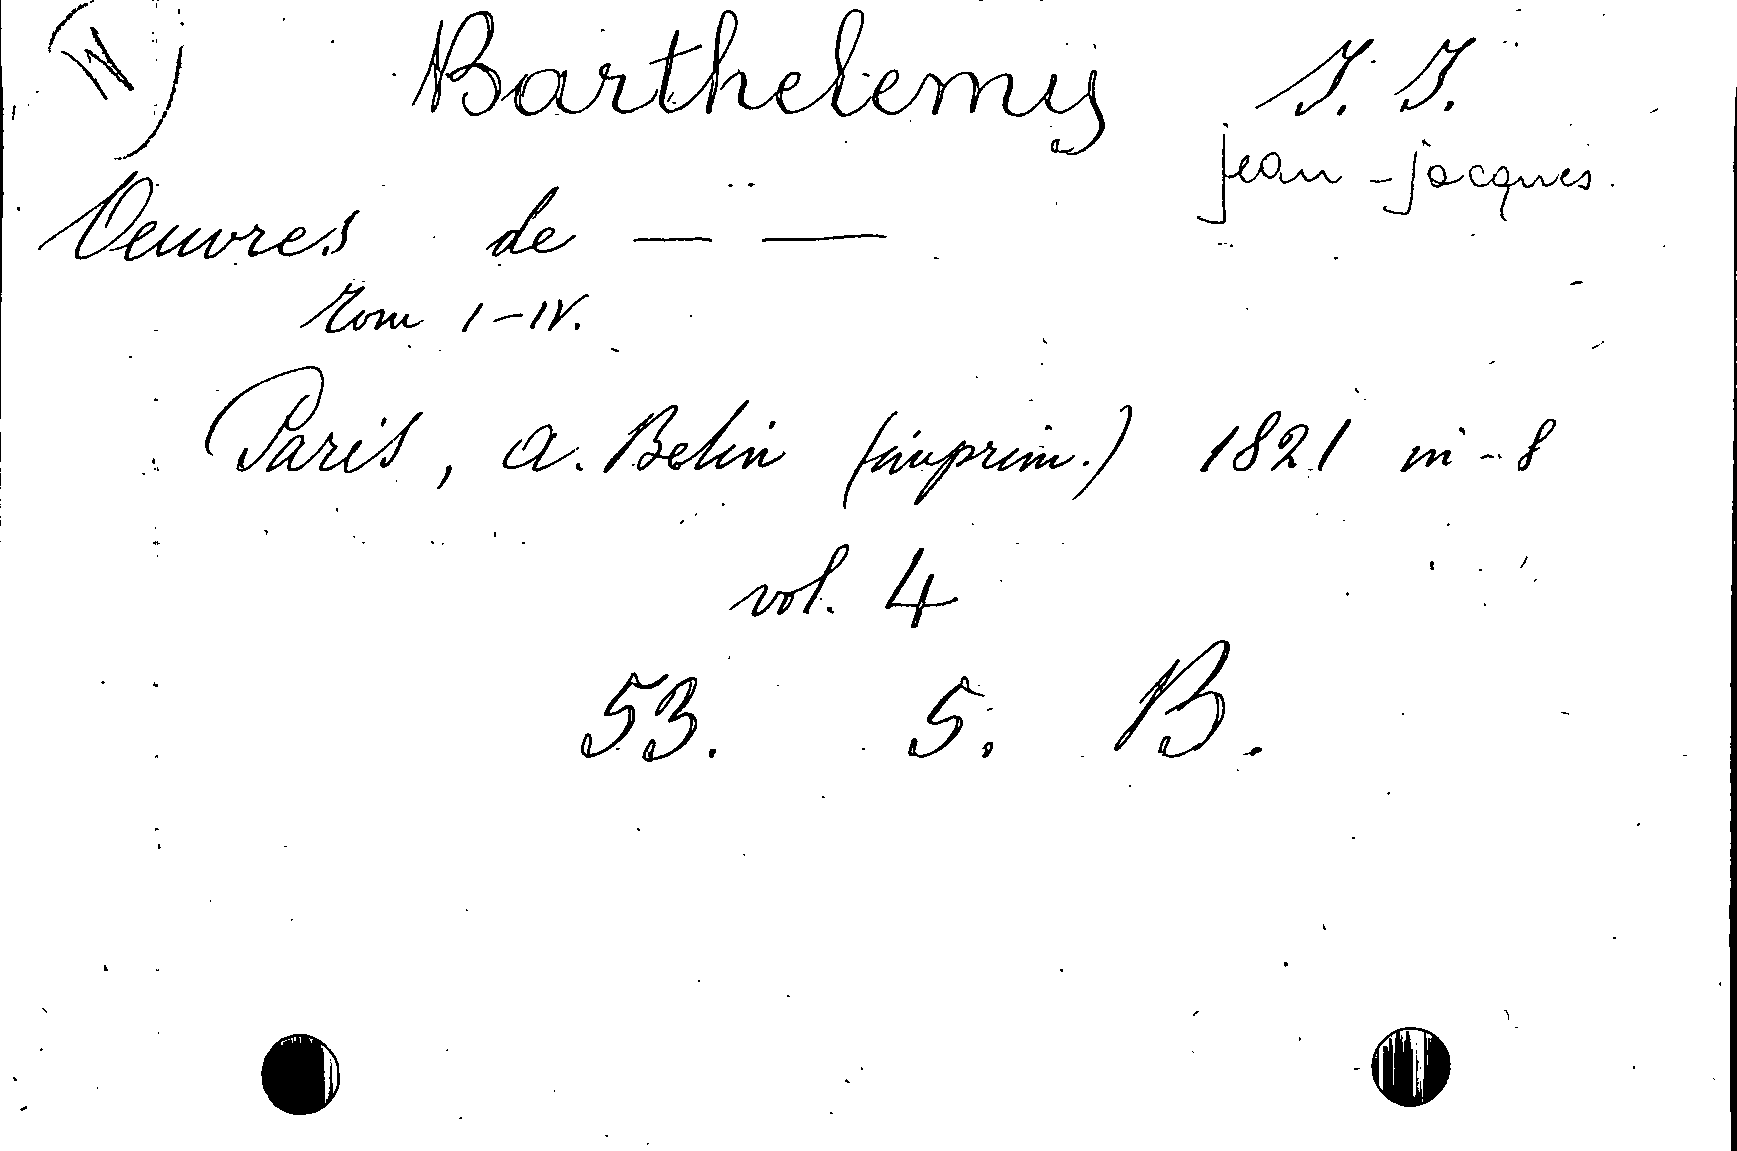 Barthelemy J. J.
Jean-Jacques.
Oeuvres de — —
Tom I-IV.
Paris, A. Belin (imprim.) 1821 in-8
vol. 4
53. 5. B.